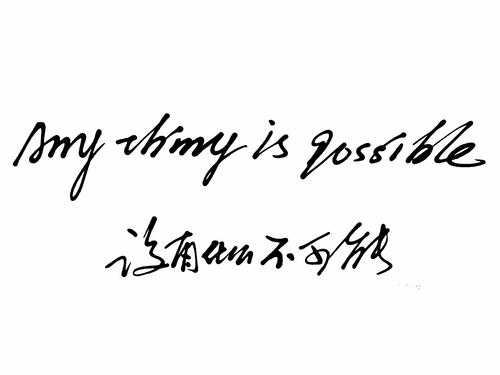 Any thing is possible
没有什么不可能